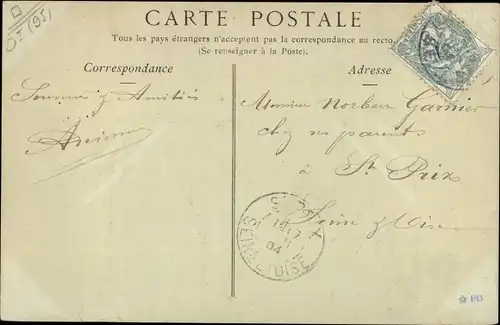 (95)
CARTE POSTALE
Tous les pays étrangers n'acceptent pas la correspondance au recto
(Se renseigner à la Poste).
Correspondance
Adresse
Amitiés
Monsieur Norbert Garnier
chez ses parents
à St Prix
Seine & Oise
SEINE-ET-OISE
04
PD